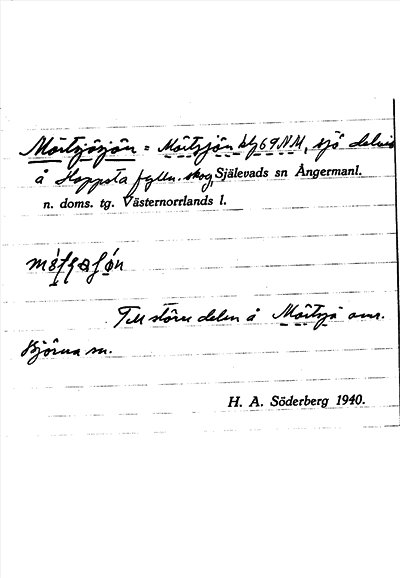 Mörtsjösjön = Mörtsjön klg 69 NM, sjö delvis
å Hoppsta fylln. skog, Själevads sn Ångermanl.
n. doms. tg. Västernorrlands l.
Till större delen å Mörtsjö omr.
Björna sn.
H. A. Söderberg 1940.